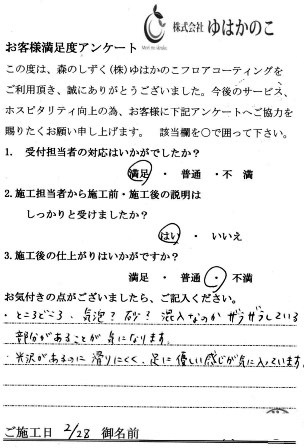 株式会社 ゆはかのこ
お客様満足度アンケート
この度は、森のしずく(株)ゆはかのこフロアコーティングを
ご利用頂き、誠にありがとうございました。今後のサービス、
ホスピタリティ向上の為、お客様に下記アンケートへご協力を
賜りたくお願い申し上げます。 該当欄を○で囲って下さい。
1. 受付担当者の対応はいかがでしたか?
満足 ・ 普通 ・ 不 満
2.施工担当者から施工前・施工後の説明は
しっかりと受けましたか?
はい ・ いいえ
3.施工後の仕上がりはいかがですか?
満足 ・ 普通 ・ 不満
お気付きの点がございましたら、ご記入ください。
・ところどころ、気泡?砂?混入なのかザラザラしている
部分があることが気になります。
・光沢があるのに滑りにくく、足に優しい感じが気に入っています。
ご施工日 2/28 御名前